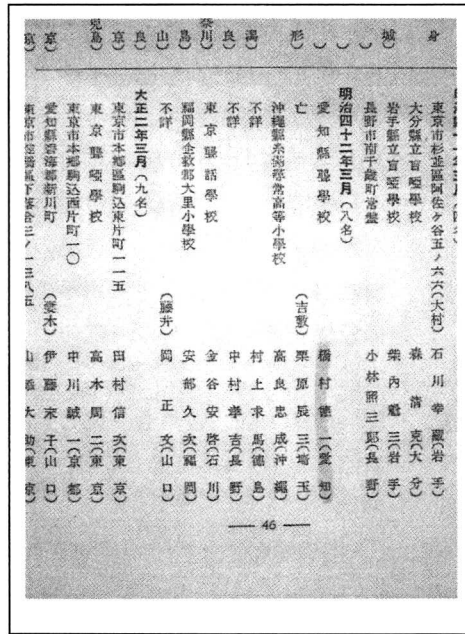 身
東京市杉並區阿佐ケ谷五ノ六六(大村) 石川幸藏(岩手)
大分縣立盲啞學校 森清克(大分)
城) 岩手縣立盲啞學校 柴內魁三(岩手)
長野市南千歲町常盤 小林照三郎(長野)
明治四十二年三月(八名)
) 愛知縣聾學校 橋村德一(愛知)
形) 亡 (吉敷) 栗原辰三(埼玉)
沖繩縣糸滿尋常高等小學校 高良忠成(沖繩)
潟) 不詳 村上求馬(德島)
良) 不詳 中村孝吉(長野)
奈川) 東京聾話學校 金谷安啓(石川)
島) 福岡縣企救郡大里小學校 安部久次(福岡)
山) 不詳 (藤井) 岡正文(山口)
良) 大正二年三月(九名)
東京市本鄉區駒込東片町一一五 田村信次(東京)
兒島) 東京聾啞學校 高木周二(東京)
東京市本鄉區駒込西片町一〇 中川誠一(京都)
京) 愛知縣碧海郡新川町 (妻木) 伊藤末子(山口)
京) 東京市淀橋區下落合三ノ一三八五 山 大助(東京)
— 46 —